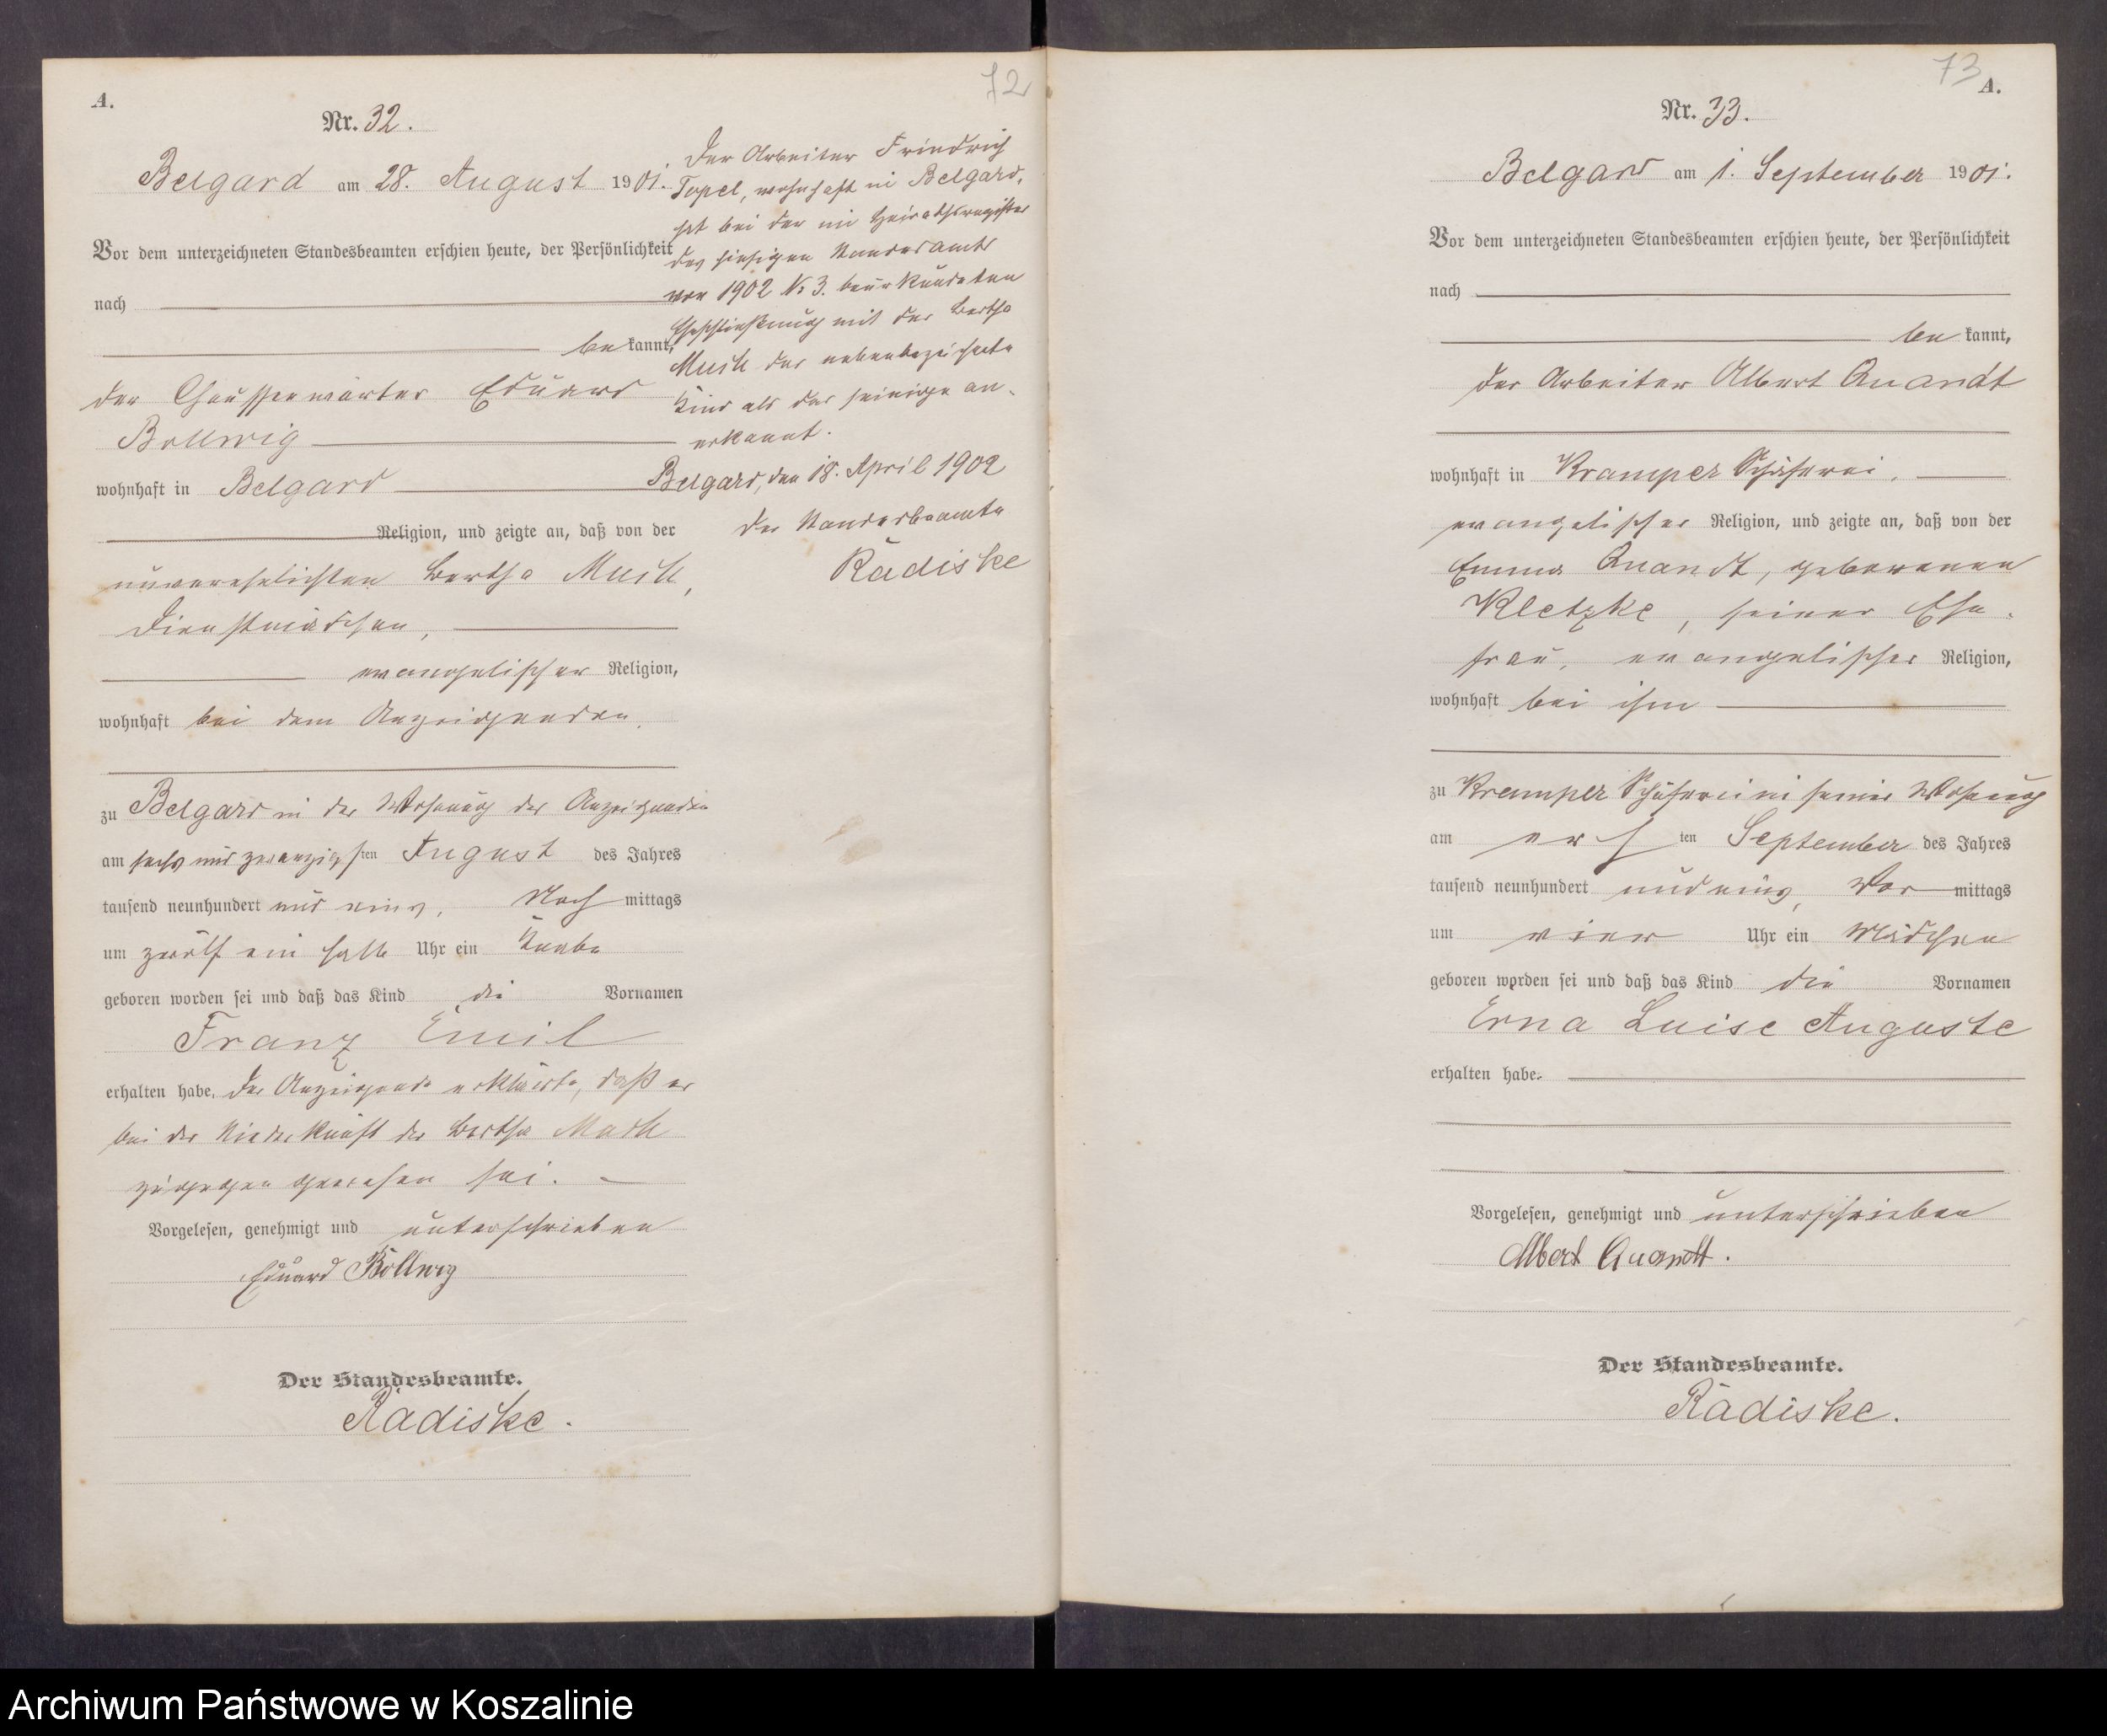 72
A.
Nr. 32.
Belgard am 28. August 1901.
Vor dem unterzeichneten Standesbeamten erschien heute, der Persönlichkeit
nach
bekannt,
der Chausseewärter Eduard
Bollwig
wohnhaft in Belgard
Religion, und zeigte an, daß von der
unverehelichten Bertha
Dienstmädchen,
evangelischer Religion,
wohnhaft bei dem Anzeigenden,
zu Belgard in der Wohnung des Anzeigenden
am sechs und zwanzigsten August des Jahres
tausend neunhundert und eins, Nachmittags
um zwölf ein halb Uhr ein Knabe
geboren worden sei und daß das Kind die Vornamen
Franz Emil
erhalten habe. Der Anzeigende erklärte, daß er
bei der Niederkunft der Bertha
zugegen gewesen sei.
Vorgelesen, genehmigt und unterschrieben
Eduard Bollwig
Der Standesbeamte.
Radiske.
Der Arbeiter Friedrich
Topel, wohnhaft in Belgard,
hat bei der im Heirathsregister
des hiesigen Standesamts
von 1902 № 3. beurkundeten
Eheschließung mit der Bertha
das nebenbezeichnete
Kind als das seinige an-
erkannt.
Belgard, den 18. April 1902
Der Standesbeamte
Radiske
73
A.
Nr. 33.
Belgard am 1. September 1901.
Vor dem unterzeichneten Standesbeamten erschien heute, der Persönlichkeit
nach
bekannt,
der Arbeiter Albert Quandt
wohnhaft in Kramper Schäferei,
evangelischer Religion, und zeigte an, daß von der
Emma Quandt, geborenen
Kletzke, seiner Ehe-
frau, evangelischer Religion,
wohnhaft bei ihm
zu Kramper Schäferei in seiner Wohnung
am ersten September des Jahres
tausend neunhundert und eins, Vormittags
um vier Uhr ein Mädchen
geboren worden sei und daß das Kind die Vornamen
Erna Luise Auguste
erhalten habe.
Vorgelesen, genehmigt und unterschrieben
Albert Quandt.
Der Standesbeamte.
Radiske.
Archiwum Państwowe w Koszalinie